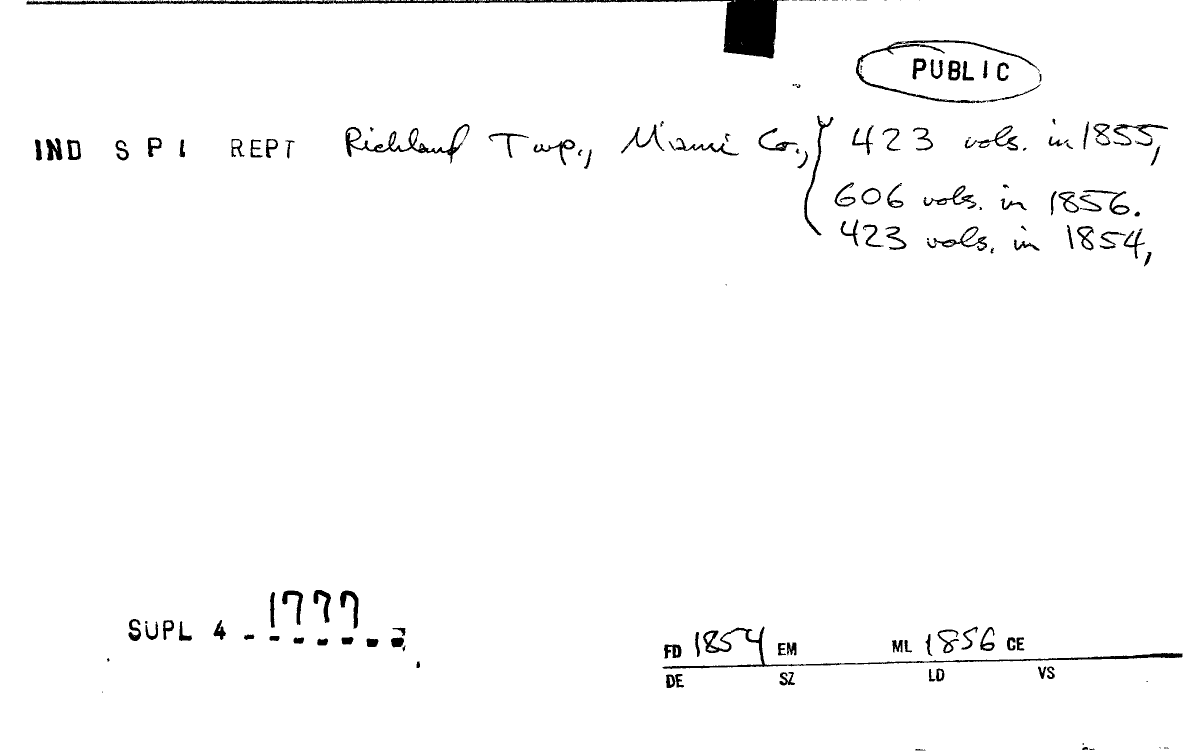 PUBLIC
IND S P I REPT Richland Twp., Miami Co., 423 vols. in 1855,
606 vols. in 1856.
423 vols. in 1854,
SUPL 4 1777
FD 1854 EM ML 1856 CE
DE SZ LD VS